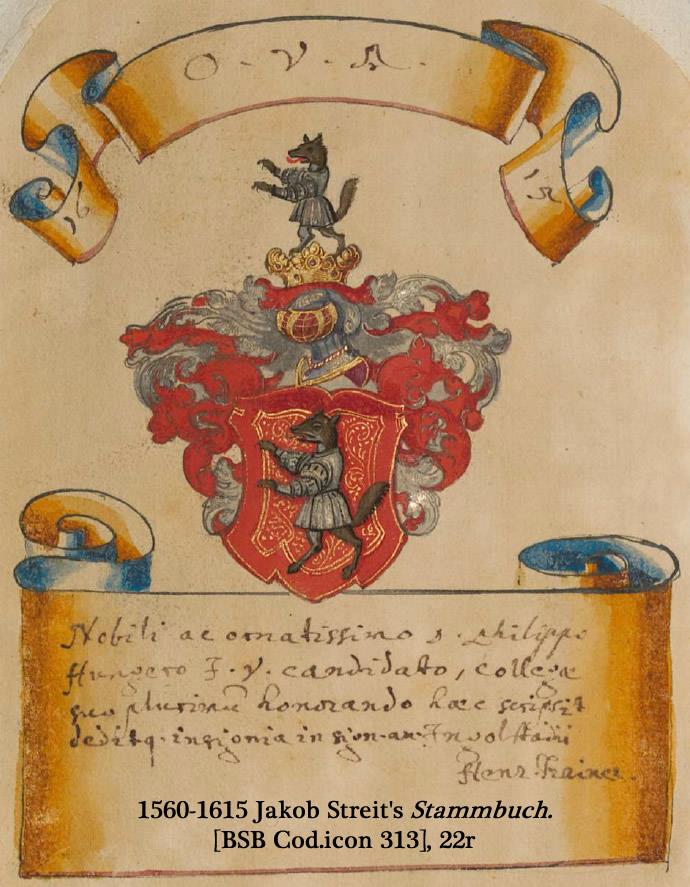 O · V · A ·
Nobili ac ornatissimo D. Philippo
Hungero J. V. candidato, collegæ
suo plurimū honorando hæc scripsit
deditq. insignia in
Henr.
1560-1615 Jakob Streit's Stammbuch.
[BSB Cod.icon 313], 22r